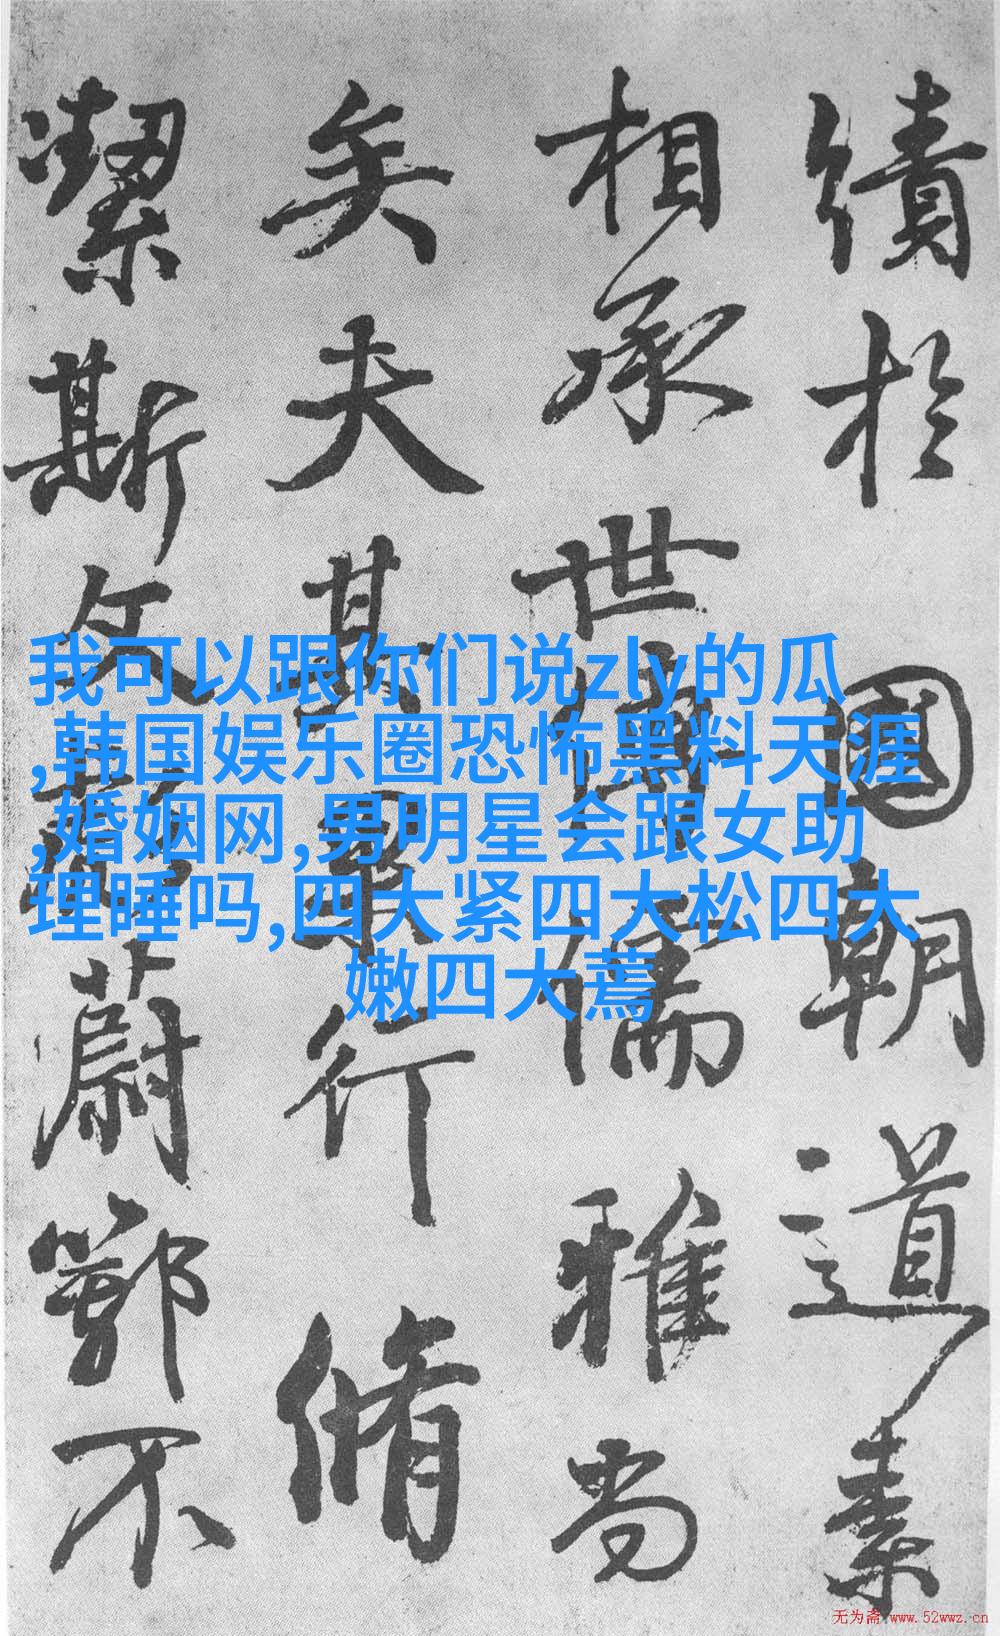 績於國朝道素
相承世傳儒雅尚
矣夫其果行脩
潔斯文彪蔚鄂不
我可以跟你们说zly的瓜
,韩国娱乐圈恐怖黑料天涯
,婚姻网,男明星会跟女助
理睡吗,四大紧四大松四大
嫩四大蔫
无为斋 www.52wwz.cn